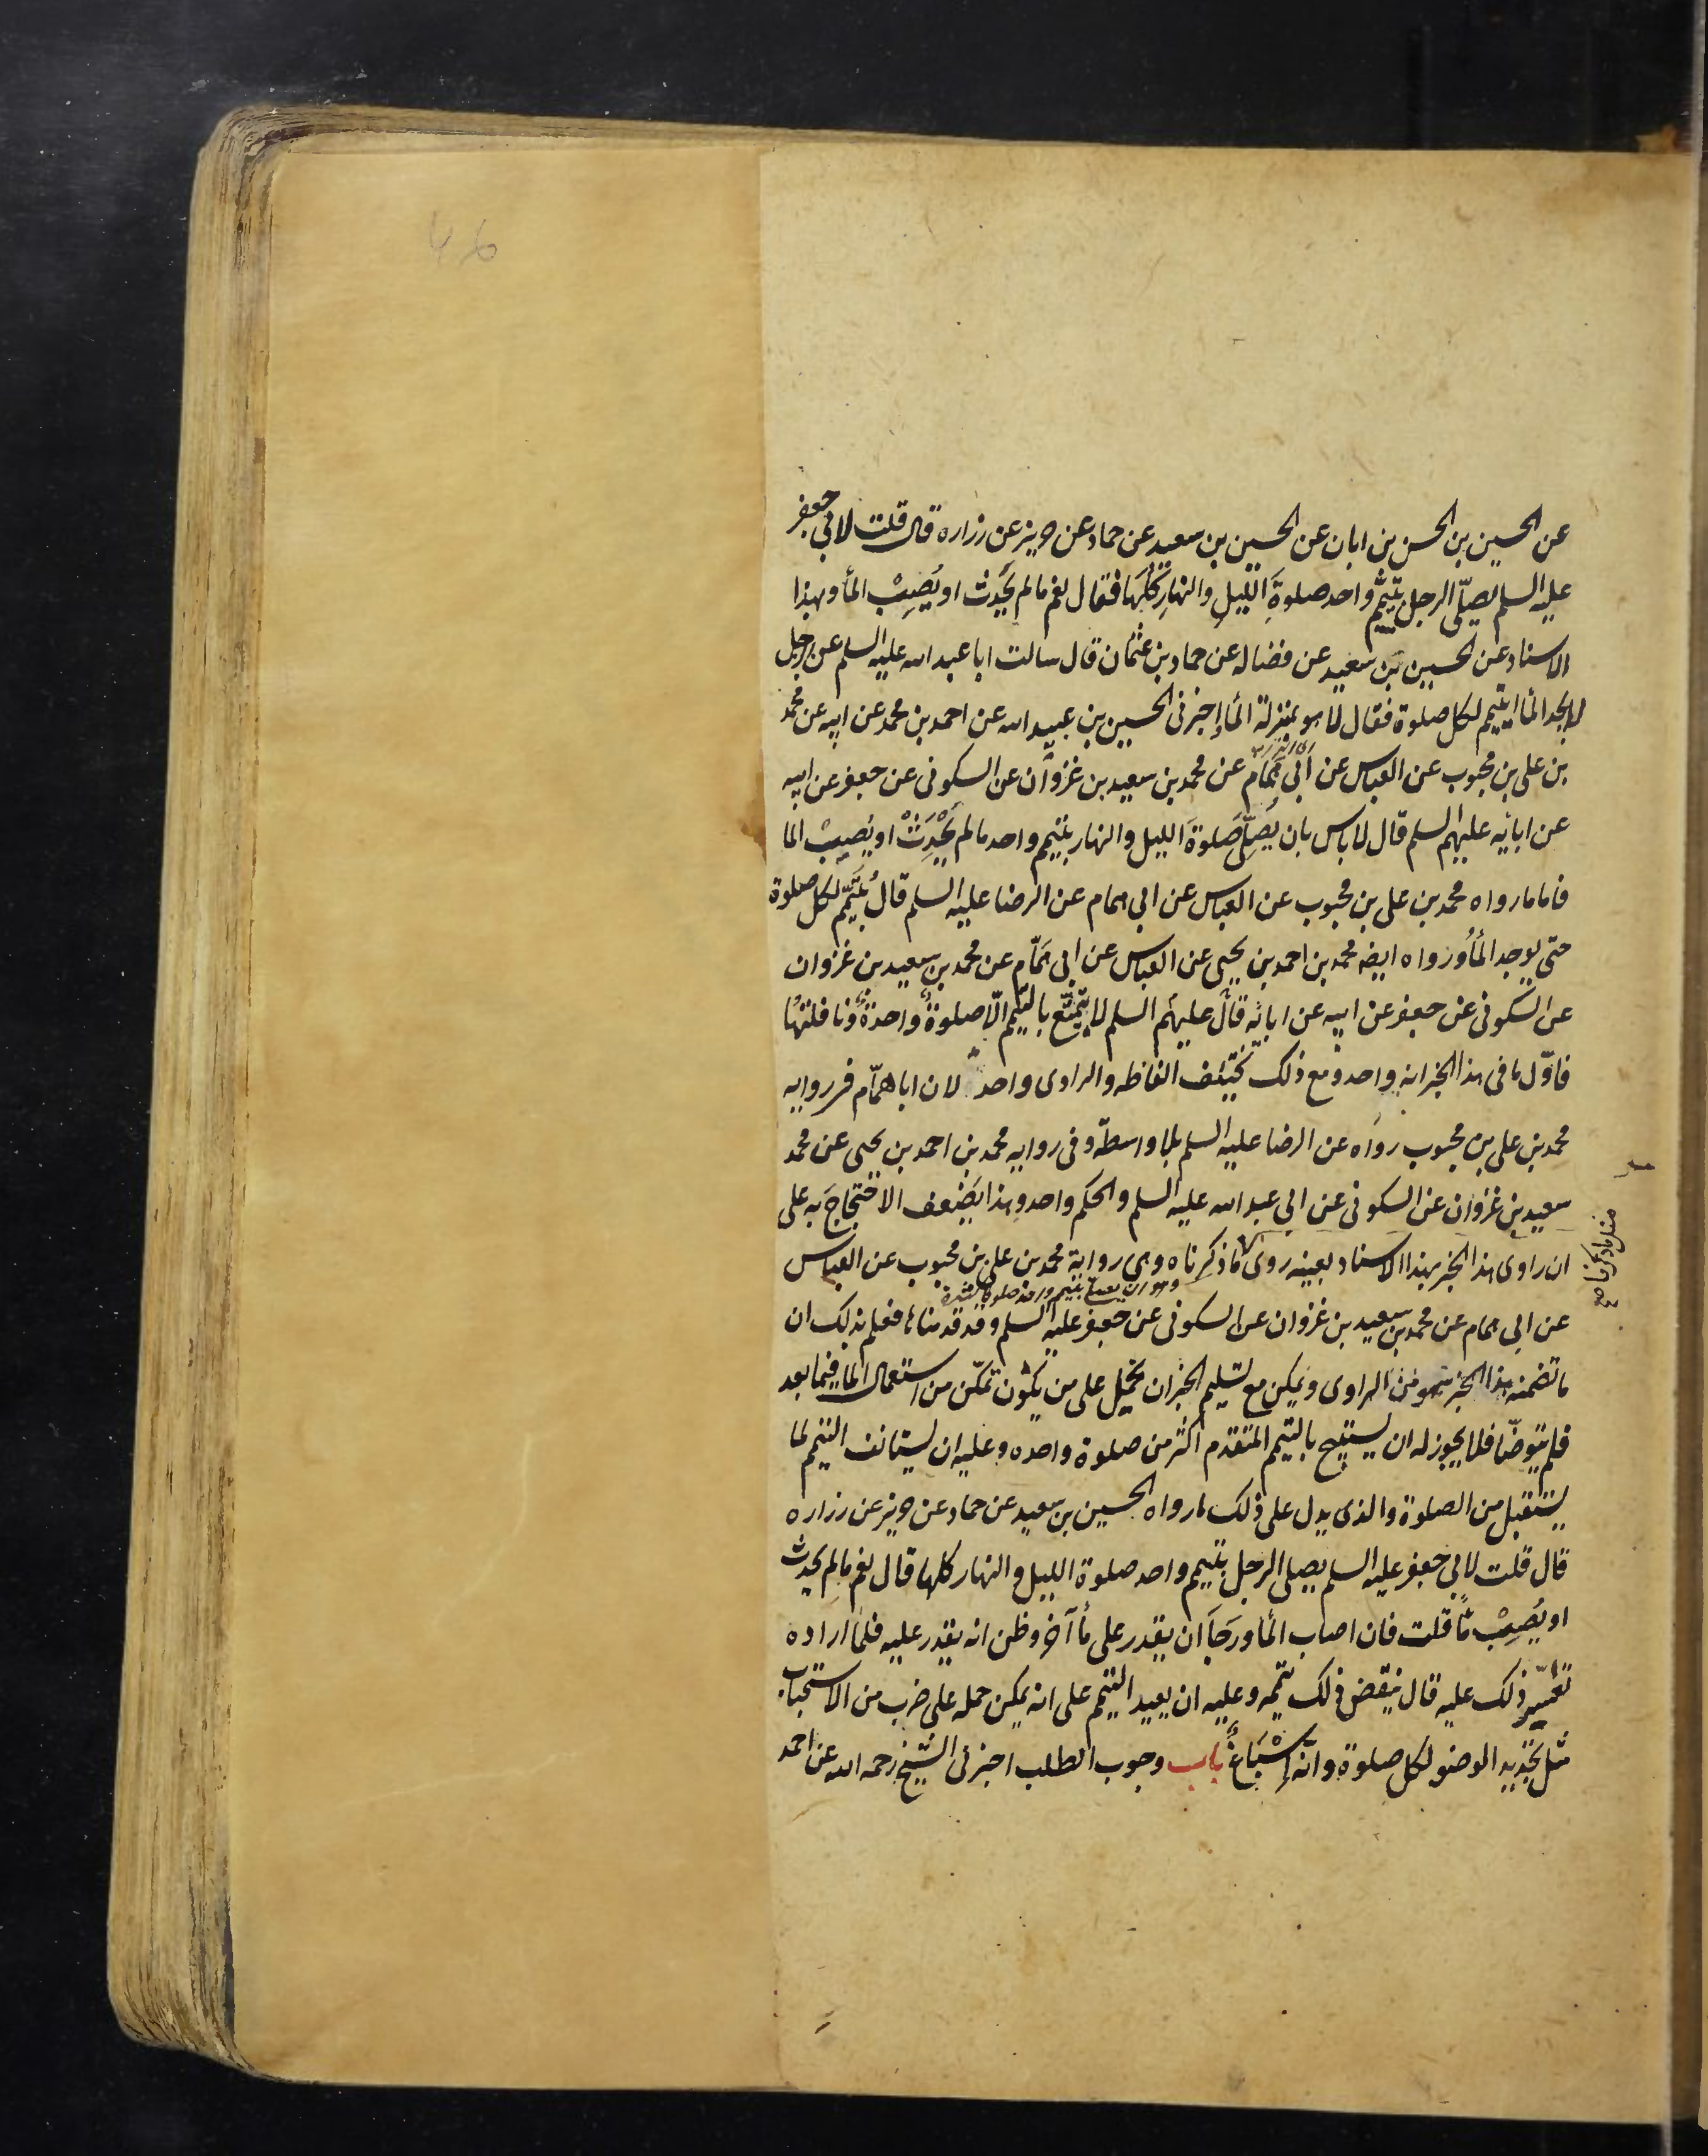 عن الحسين بن الحسن بن ابان عن الحسين بن سعيد عن حماد عن حريز عن زراره قال قلت لابي جعفر
عليه السلم يصلّى الرجل بتيمّم واحد صلوةَ الليلِ والنهارِ كلِّها فقال نعم مالم يُحدِث او يُصِيبْ المأ وبهذا
الاسناد عن الحسين بن سعيد عن فضاله عن حماد بن عثمان قال سالت ابا عبد الله عليه السلم عن رجل
لا يجد المأ ايتيمم لكل صلوة فقال لا هو بمنزلة المأ واخبرنى الحسين بن عبيد الله عن احمد بن محمد عن ابيه عن محمد
بن على بن محبوب عن العباس عن ابى همّام عن محمد بن سعيد بن غزوان عن السكونى عن جعفر عن ابيه
عن ابائه عليهم السلم قال لا باس بان يُصَلِّى صَلوةَ الليل والنهار بتيمم واحد مالم يُحْدِثْ او يُصِيبْ الما
فاما مارواه محمد بن على بن محبوب عن العباس عن ابى همام عن الرضا عليه السلم قال يُتَيَمّم لكل صلوة
حتى يوجد المأ ورواه ايضه محمد بن احمد بن يحيى عن العباس عن ابى همّام عن محمد بن سعيد بن غزوان
عن السكونى عن جعفر عن ابيه عن ابائه قال عليهم السلم لا يتمتّع بالتيمم الّا صلوةً واحدةً ونافلتها
فاوّل ما فى هذا الخبر انه واحد ومع ذلك تختلف الفاظه والراوى واحد لان ابا همّام فى روايه
محمد بن على بن محبوب رواه عن الرضا عليه السلم بلا واسطة وفى روايه محمد بن احمد بن يحيى عن محمد
سعيد بن غزوان عن السكونى عن ابى عبد الله عليه السلم والحكم واحد وهذا يضعف الاحتجاج به على
ان راوى هذا الخبر بهذا الاسناد بعينه روى ما ذكرناه وهى رواية محمد بن على بن محبوب عن العباس
مثل ماذكرناه
عن ابى همام عن محمد بن سعيد بن غزوان عن السكونى عن جعفر عليه السلم وقد قدمناه فعلم بذلك ان
ما تضمنه هذا الخبر سهو من الراوى ويمكن مع تسليم الخبر ان يحمل على من يكون تمكّن من استعمال الما فيما بعد
فلم يتوضّا فلا يجوز له ان يستبيح بالتيمم المتقدم اكثر من صلوة واحده وعليه ان يستانف التيمم لما
يستقبل من الصلوة والذى يدل على ذلك مارواه الحسين بن سعيد عن حماد عن حريز عن زراره
قال قلت لابى جعفر عليه السلم يصلى الرجل بتيمم واحد صلوة الليل والنهار كلها قال نعم مالم يحدث
او يُصِيبْ مأ قلت فان اصاب المأ ورَجَا ان يقدر على مأ آخر وظن انه يقدر عليه فلما اراده
تعسّر ذلك عليه قال ينقض ذلك تيممه وعليه ان يعيد التيمم على انه يمكن حمله على ضرب من الاستحباب
مثل تجديد الوضو لكل صلوة وانّه إسْبَاغٌ باب وجوب الطلب اخبرنى الشيخ رحمه الله عن احمد